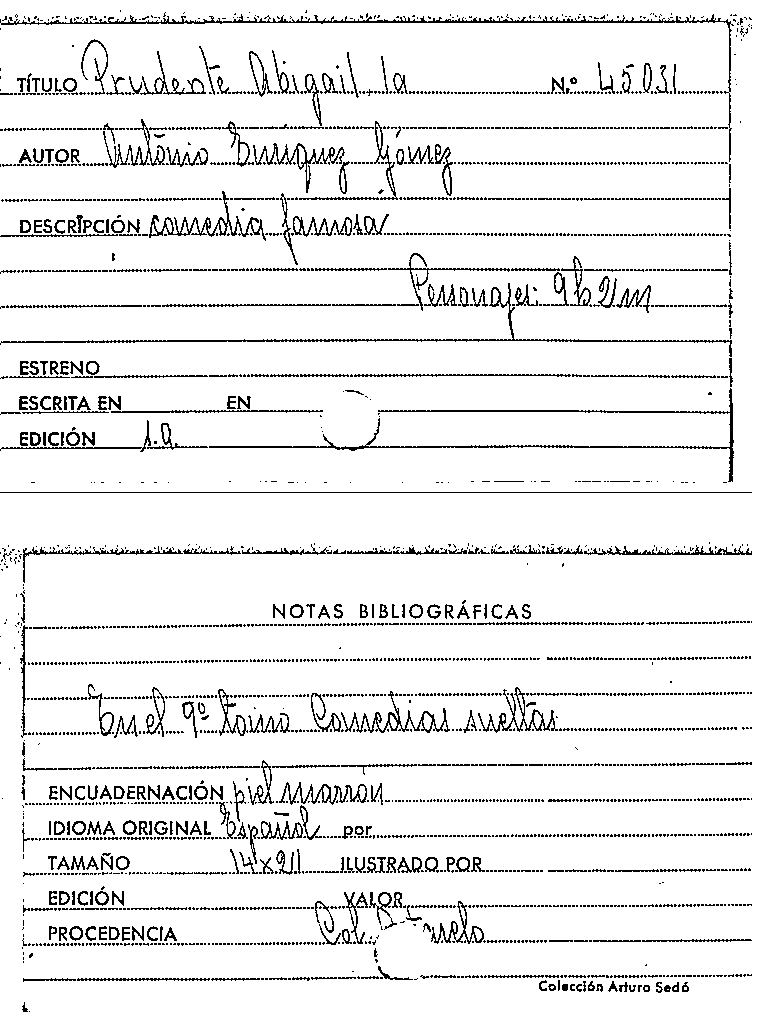 TÍTULO Prudente Abigail, la N.º 45031
AUTOR António Enríquez Gómez
DESCRIPCIÓN comedia famosa
Personajes: 9h 2m
ESTRENO
ESCRITA EN EN
EDICIÓN s.a.
NOTAS BIBLIOGRÁFICAS
En el 9º tomo Comedias sueltas
ENCUADERNACIÓN piel marrón
IDIOMA ORIGINAL Español por
TAMAÑO 14 x 211 ILUSTRADO POR
EDICIÓN VALOR
PROCEDENCIA Col.
Colección Arturo Sedó